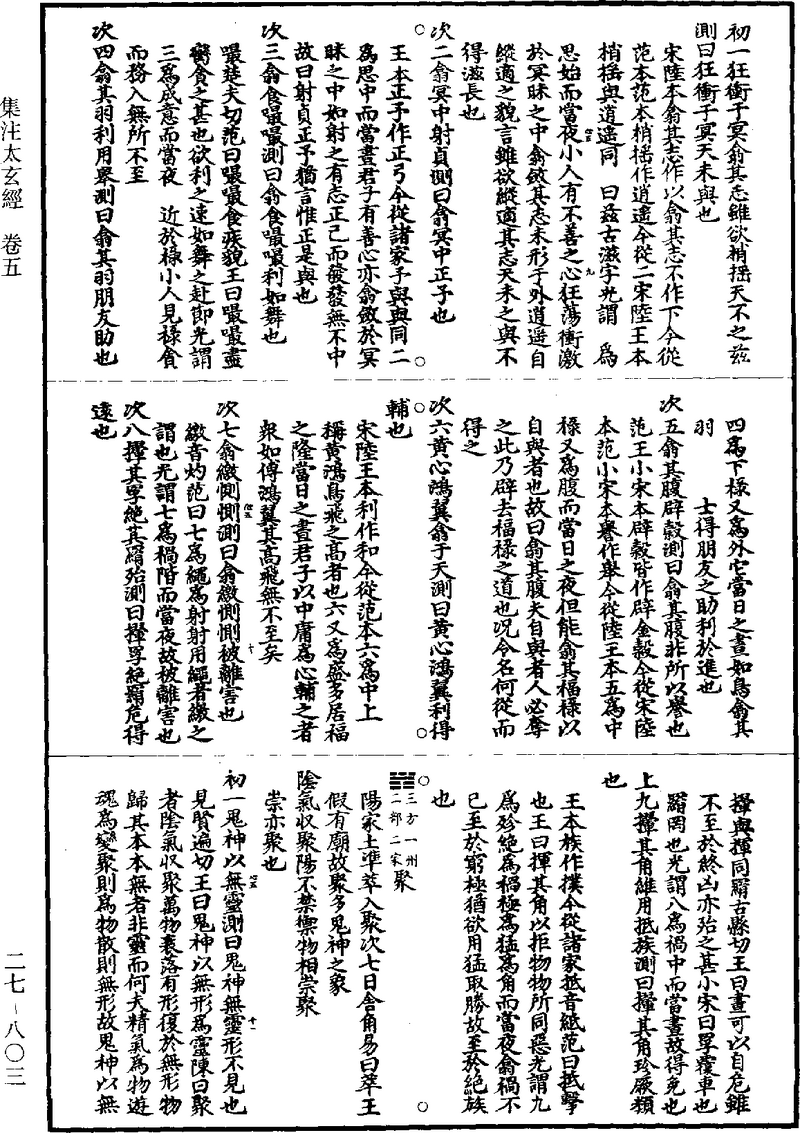 初一狂衝于冥翕其志雖欲梢摇天不之茲
測曰狂衝于冥天未與也
宋陸本翕其志作以翕其志不作下今從
范本范本梢摇作逍遥今從二宋陸王本
梢摇與逍遥同 曰茲古滋字光謂 為
思始而當夜小人有不善之心狂蕩衝激
於冥昧之中翕斂其志未形于外逍遥自
縱適之貌言雖欲縱適其志天未之與不
得滋長也
次二翕冥中射貞測曰翕冥中正予也
王本正予作正弓今從諸家予與與同二
為思中而當晝君子有善心亦翕斂於冥
昧之中如射之有志正己而後發無不中
故曰射貞正予猶言惟正是與也
次三翕食嘬嘬測曰翕食嘬嘬利如舞也
嘬楚夬切范曰嘬嘬食疾貌王曰嘬嘬盡
臠貪之甚也欲利之速如舞之赴節光謂
三為成意而當夜 近於祿小人見祿貪
而務入無所不至
次四翕其羽利用舉測曰翕其羽朋友助也
四為下祿又為外它當日之晝如鳥翕其
羽 士得朋友之助利於進也
次五翕其腹辟穀測曰翕其腹非所以譽也
范王小宋本辟穀皆作辟金穀今從宋陸
本范小宋本譽作舉今從陸王本五為中
祿又為腹而當日之夜但能翕其福祿以
自與者也故曰翕其腹夫自與者人必奪
之此乃辟去福祿之道也况令名何從而
得之
次六黄心鴻翼翕于天測曰黄心鴻翼利得
輔也
宋陸王本利作和今從范本六為中上
稱黄鴻鳥飛之高者也六又為盛多居福
之隆當日之晝君子以中庸為心輔之者
衆如傅鴻翼其高飛無不至矣
次七翕繳惻惻測曰翕繳惻惻被離害也
繳音灼范曰七為繩為射射用繩者繳之
謂也光謂七為禍階而當夜故被離害也
次八揮其罦絶其羂殆測曰揮罦絶羂危得
遠也
揮與揮同羂古縣切王曰晝可以自危雖
不至於終凶亦殆之甚小宋曰罦覆車也
羂罔也光謂八為禍中而當晝故得免也
上九揮其角維用抵族測曰揮其角殄厥類
也
王本族作撲今從諸家抵音紙范曰抵擊
也王曰揮其角以拒物物所同惡光謂九
為殄絶為禍極為猛為角而當夜翕禍不
已至於窮極猶欲用猛取勝故至於絶族
也
三方一州二部二家聚
陽家土準萃入聚次七日舍角易曰萃王
假有廟故聚多鬼神之象
陰氣収聚陽不禁禦物相崇聚
崇亦聚也
初一鬼神以無靈測曰鬼神無靈形不見也
見賢遍切王曰鬼神以無形為靈陳曰聚
者陰氣収聚萬物衰落有形復於無形物
歸其本本無者非靈而何夫精氣為物遊
魂為變聚則為物散則無形故鬼神以無
集注太玄經 卷五
二七–八〇三